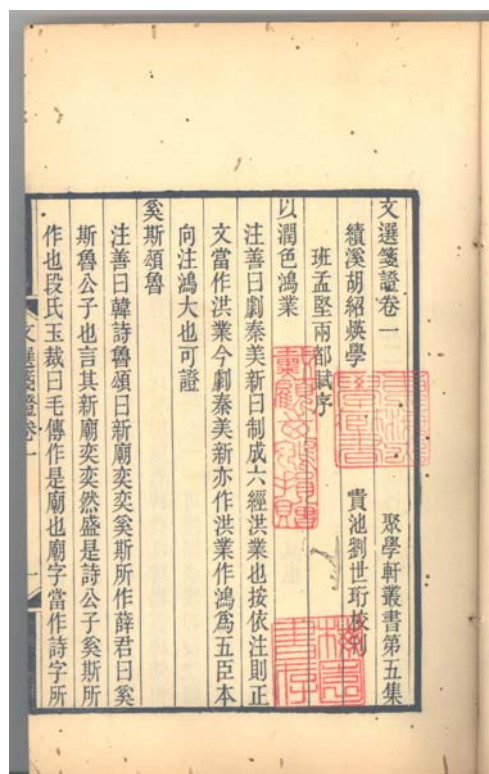 文選箋證卷一 聚學軒叢書第五集
績溪胡紹煐學 貴池劉世珩校刊
班孟堅兩都賦序
以潤色鴻業
注善曰劇秦美新曰制成六經洪業也按依注則正
文當作洪業今劇秦美新亦作洪業作鴻爲五臣本
向注鴻大也可證
奚斯頌魯
注善曰韓詩魯頌曰新廟奕奕奚斯所作薛君曰奚
斯魯公子也言其新廟奕奕然盛是詩公子奚斯所
作也段氏玉裁曰毛傳作是廟也廟字當作詩字所
文選箋證卷一 一